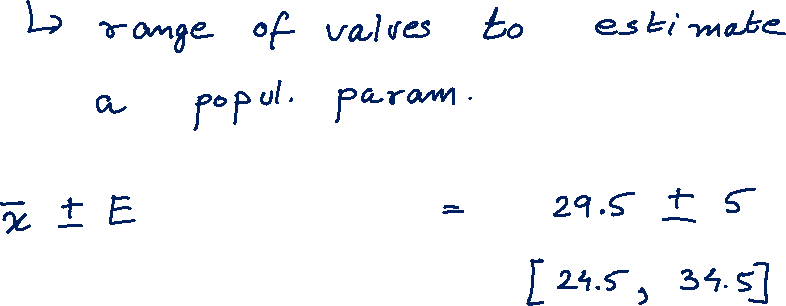 ↳ range of values to estimate
a popul. param.
x̄ ± E = 29.5 ± 5
[24.5, 34.5]